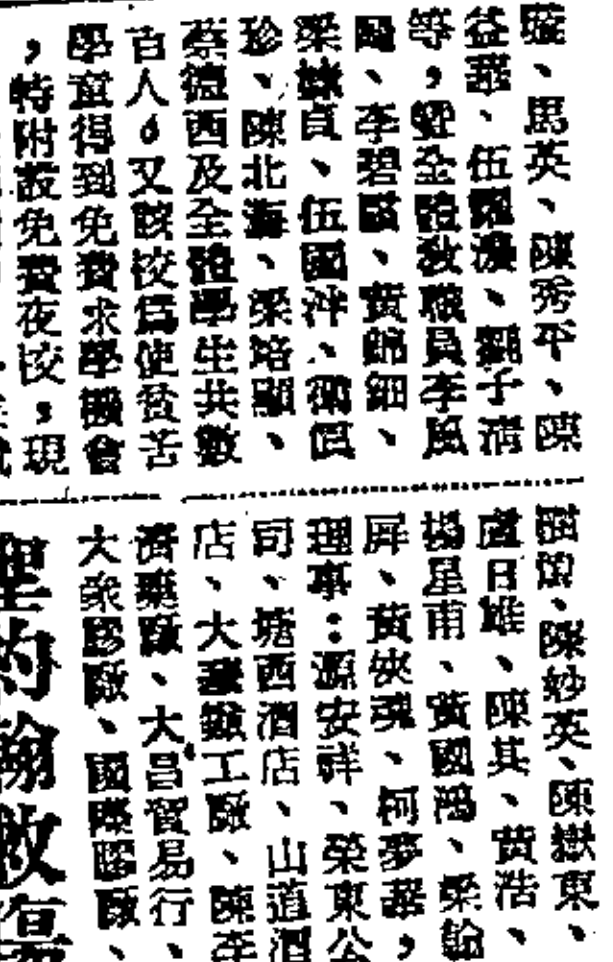 璇、馬英、陳秀平、陳
益華、伍耀濃、劉子清
等，曁全體敎職員李風
陽、李碧、黄錦細、
梁嫌貞、伍國冲、
珍、陳北海、梁培顯、
蔡德西及全體學生共數
百人。又該校爲使貧苦
學童得到免費求學機會
，特附設免費夜校，現
、陳妙英、陳嶽東、
盧日雄、陳其、黄浩、
楊星甫、黃國鴻、梁
屏、黃俠魂、柯夢，
理事：源安祥、榮東公
司、塘西酒店、山道酒
店、大工廠、陳李
濟藥廠、大昌貿易行、
大衆膠廠、國際膠廠、
聖約翰救傷